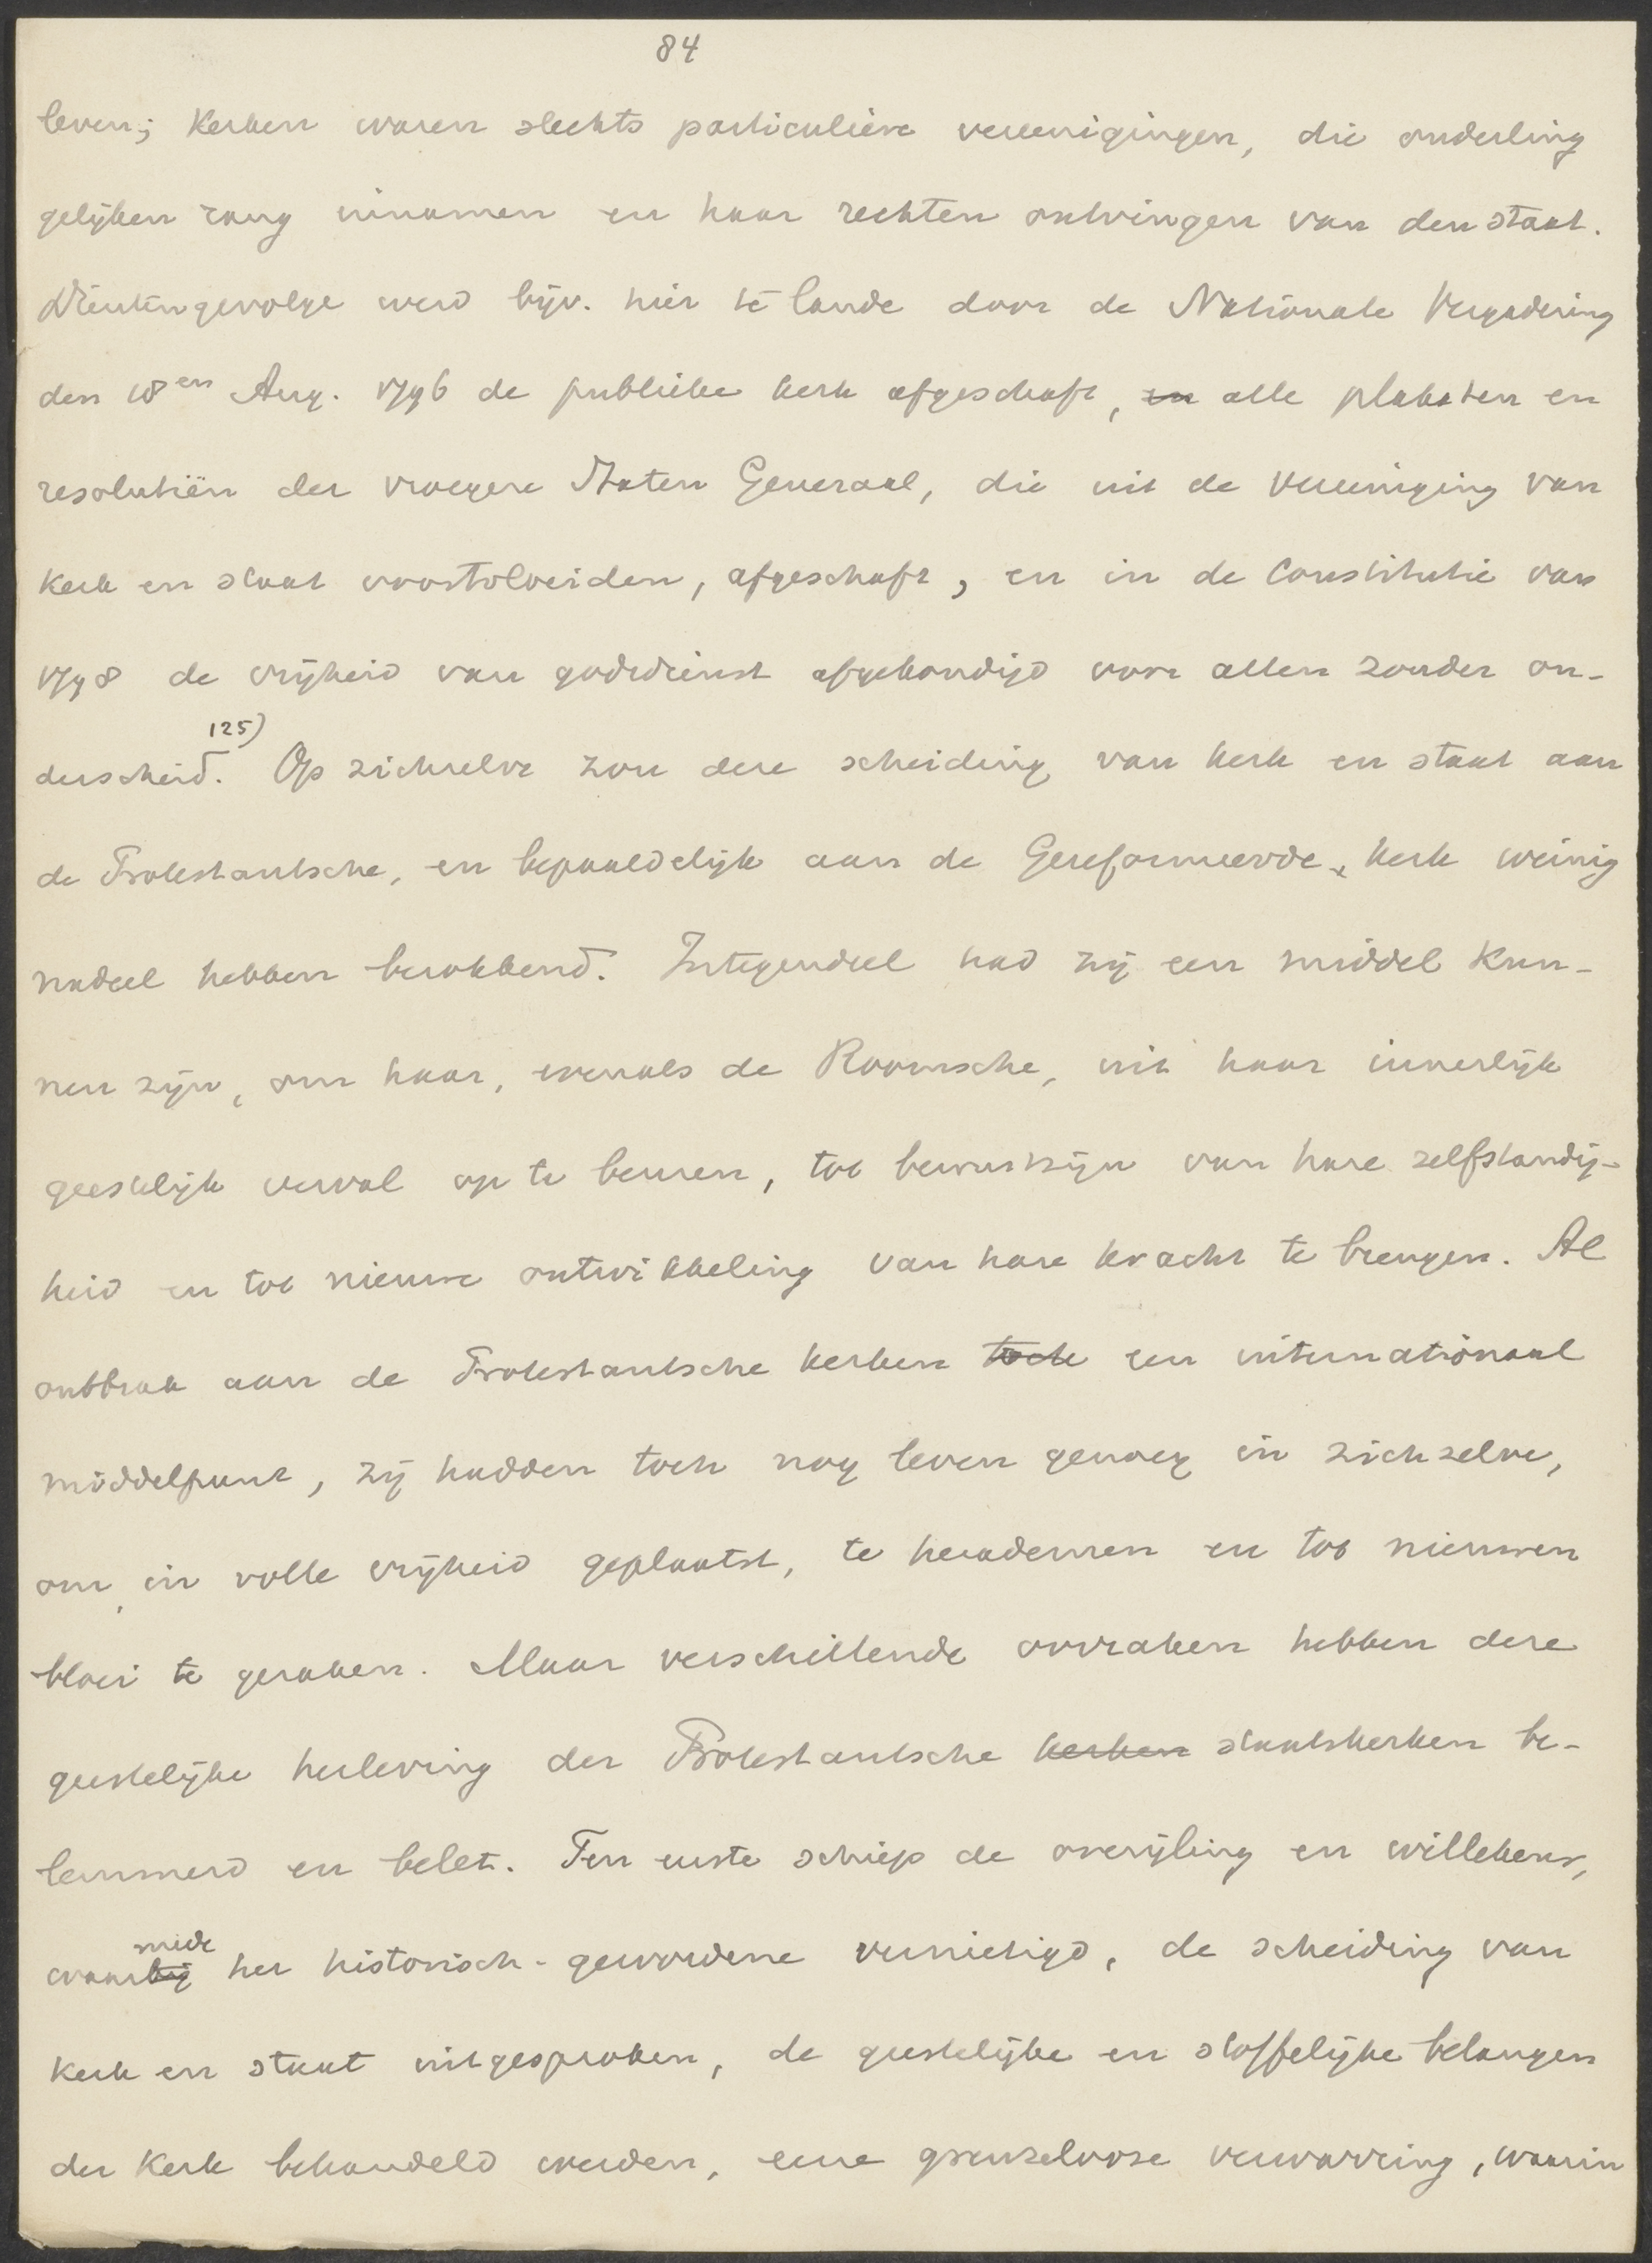 84
leven; Kerken waren slechts particuliere vereenigingen, die onderling
gelijken rang innamen en haar rechten ontvingen van den staat.
Dientengevolge werd bijv. hier te lande door de Nationale Vergadering
den 18en Aug. 1796 de publieke kerk afgeschaft, en alle plakaten en
resolutiën der vroegere Staten Generaal, die uit de vereeniging van
Kerk en staat voortvloeiden, afgeschaft, en in de Constitutie van
1798 de vrijheid van godsdienst afgekondigd voor allen zonder on-
derscheid. 125) Op zichzelve zou deze scheiding van kerk en staat aan
de Protestantsche, en bepaaldelijk aan de Gereformeerde, kerk weinig
nadeel hebben berokkend. Integendeel had zij een middel kun-
nen zijn, om haar, evenals de Roomsche, uit haar innerlijk
geestelijk verval op te beuren, tot bewustzijn van hare zelfstandig-
heid en tot nieuwe ontwikkeling van hare kracht te brengen. Al
ontbrak aan de Protestantsche kerken toch een internationaal
middelpunt, zij hadden toch nog leven genoeg in zichzelve,
om, in volle vrijheid geplaatst, te herademen en tot nieuwen
bloei te geraken. Maar verschillende oorzaken hebben deze
geestelijke herleving der Protestantsche kerken staatskerken be-
lemmerd en belet. Ten eerste schiep de overijling en willekeur,
mede
waarbij het historisch-gewordene vernietigd, de scheiding van
Kerk en staat uitgesproken, de geestelijke en stoffelijke belangen
der Kerk behandeld werden, eene grenzelooze verwarring, waarin